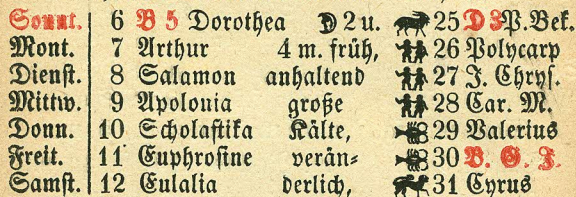 Sonnt. 6 B 5 Dorothea ☽ 2 u. 25 D 3 P. Bek.
Mont. 7 Arthur 4 m. früh, 26 Polycarp
Dienst. 8 Salamon anhaltend 27 J. Chrys.
Mittw. 9 Apolonia große 28 Car. M.
Donn. 10 Scholastika Kälte, 29 Valerius
Freit. 11 Euphrosine verän- 30 B. G. J.
Samst. 12 Eulalia derlich, 31 Cyrus